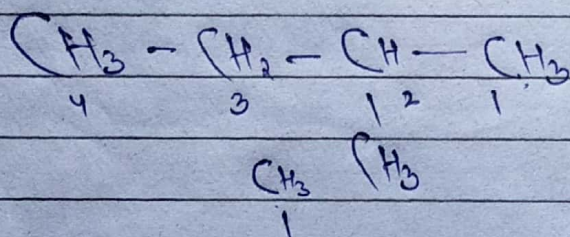 CH3 - CH2 - CH - CH3
4 3 | 2 1
CH3 CH3
|